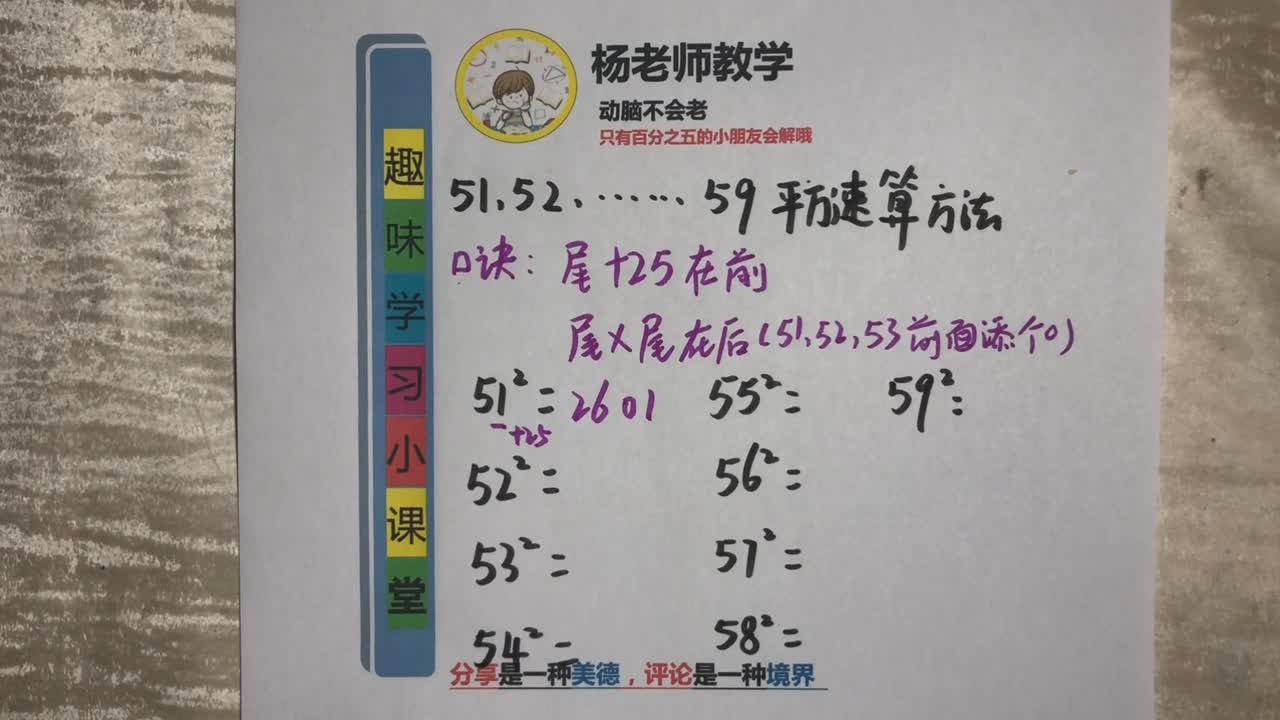 杨老师教学
动脑不会老
只有百分之五的小朋友会解哦
趣味学习小课堂
51、52、…… 59 平方速算方法
口诀：尾+25在前
尾×尾在后(51,52,53前面添个0)
51²=2601 55²= 59²=
+25
52²= 56²=
53²= 57²=
54²= 58²=
分享是一种美德，评论是一种境界